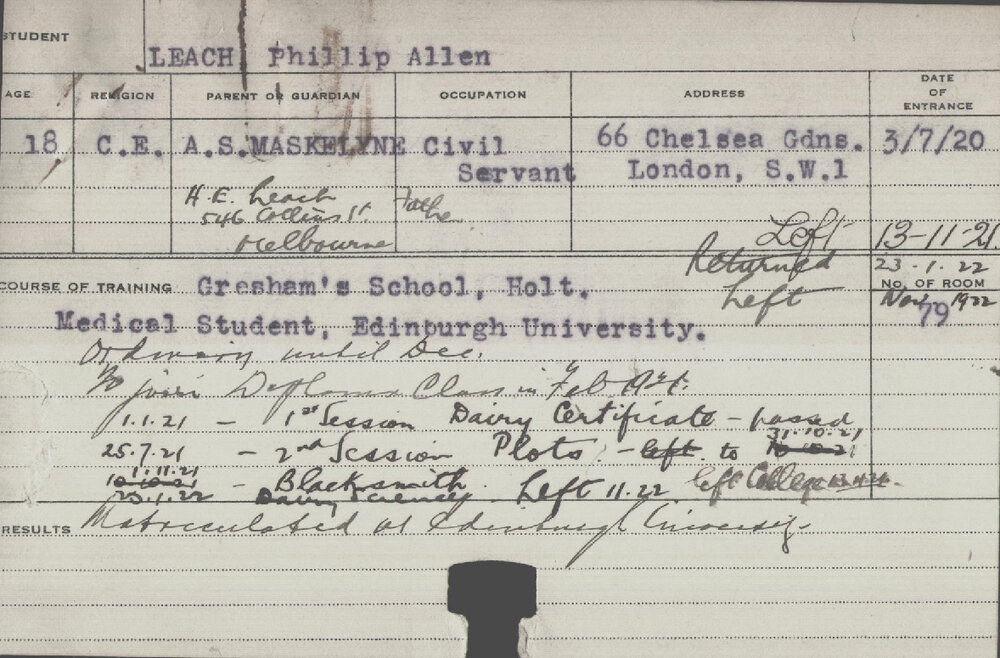 STUDENT
LEACH Phillip Allen
AGE RELIGION PARENT OR GUARDIAN OCCUPATION ADDRESS DATE OF ENTRANCE
18 C.E. A.S.MASKELYNE Civil Servant 66 Chelsea Gdns. London, S.W.1 3/7/20
H.E. Leach Father
546 Collins St.
Melbourne
Left 13-11-21
Returned 23.1.22
Left Nov 1922
NO. OF ROOM
79
COURSE OF TRAINING Gresham's School, Holt.
Medical Student, Edinburgh University.
Ordinary until Dec.
To join Diploma Class in Feb 1921.
1.1.21 - 1st Session Dairy Certificate - passed
25.7.21 - 2nd Session Plots - left to 10.10.21 31.10.21
10.10.21 1.11.21 - Blacksmith. left College
23.1.22 Dairy Science. Left 11.22.
RESULTS Matriculated at Edinburgh University.